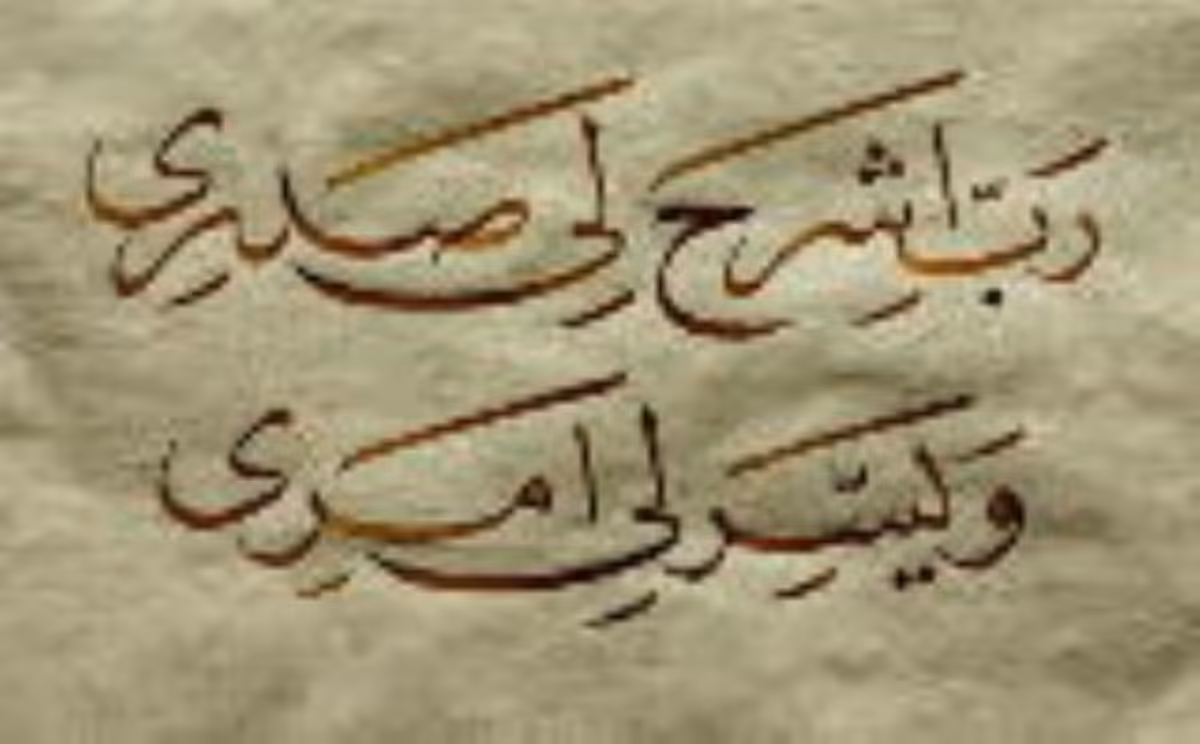 رَبِّ اشرَح لِي صَدرِي
وَيَسِّر لِي امرِى